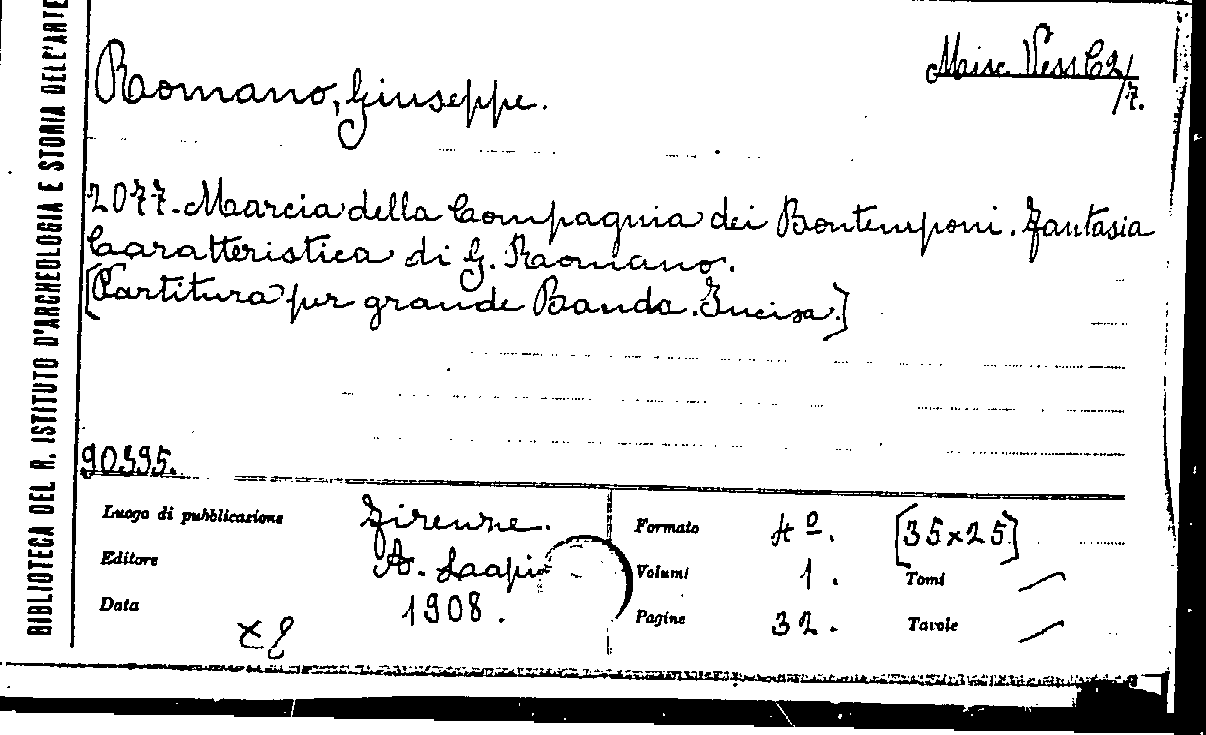 BIBLIOTECA DEL R. ISTITUTO D'ARCHEOLOGIA E STORIA DELL'ARTE
Misc. Vess C2/
/7.
Romano, Giuseppe.
2077. Marcia della Compagnia dei Bontemponi. Fantasia
Caratteristica di G. Romano.
[Partitura per grande Banda. Incisa.]
90395.
Luogo di pubblicazione Firenze.
Editore A. Lapi
Data 1908.
Formato 4º. [35x25]
Volumi 1. Tomi /
Pagine 32. Tavole /